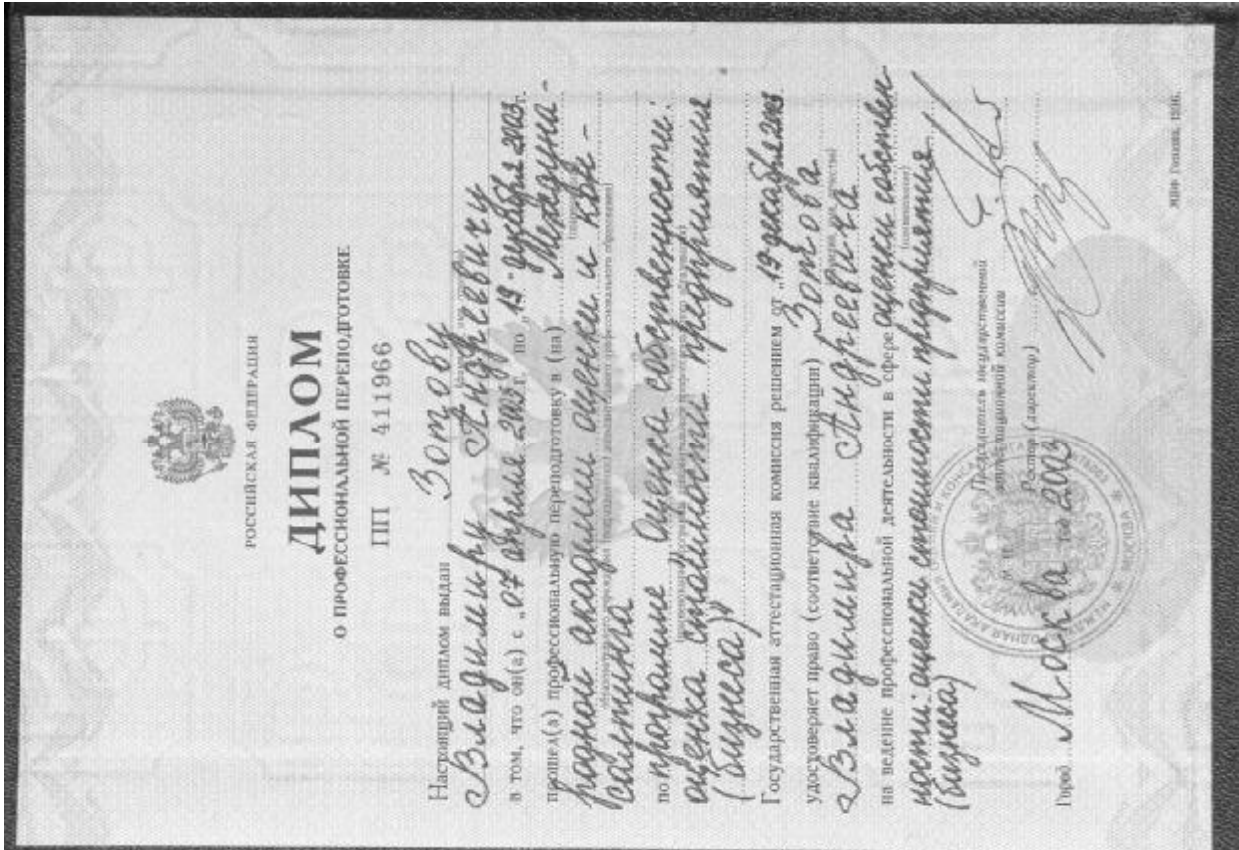 РОССИЙСКАЯ ФЕДЕРАЦИЯ
ДИПЛОМ
О ПРОФЕССИОНАЛЬНОЙ ПЕРЕПОДГОТОВКЕ
ПП № 411966
Настоящий диплом выдан Зотову
Владимиру Андреевичу
в том, что он(а) с „07" апреля 2003 г. по „19" декабря 2003 г.
прошел(а) профессиональную переподготовку в (на) Междуна-
родной академии оценки и кон-
салтинга
по программе Оценка собственности:
оценка стоимости предприятия
(бизнеса)
Государственная аттестационная комиссия решением от „19" декабря 2003
удостоверяет право (соответствие квалификации) Зотова
Владимира Андреевича
на ведение профессиональной деятельности в сфере оценки собствен-
ности: оценки стоимости предприятия
(бизнеса)
Председатель государственной
аттестационной комиссии
Ректор (директор)
Город Москва 2003
МОСКВА